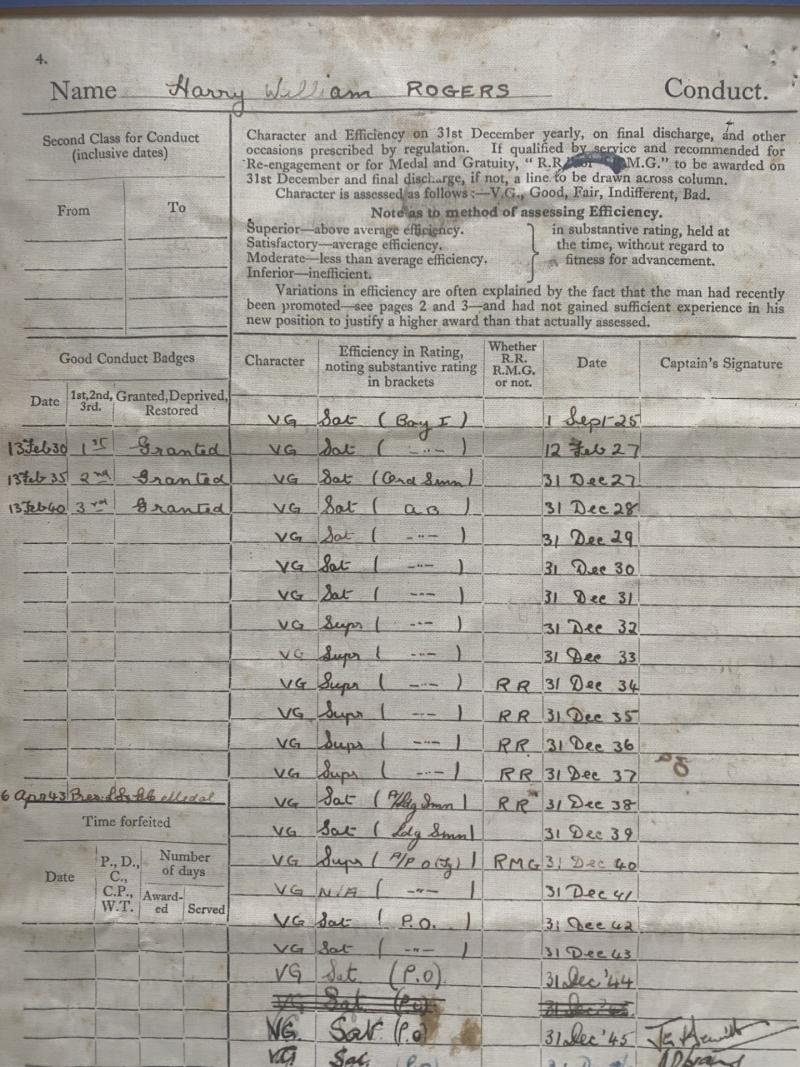 4.
Name Harry William ROGERS Conduct.
Second Class for Conduct
(inclusive dates)
From To
Character and Efficiency on 31st December yearly, on final discharge, and other
occasions prescribed by regulation. If qualified by service and recommended for
Re-engagement or for Medal and Gratuity, "R.R. M.G." to be awarded on
31st December and final discharge, if not, a line to be drawn across column.
Character is assessed as follows:—V.G., Good, Fair, Indifferent, Bad.
Note as to method of assessing Efficiency.
Superior—above average efficiency.
Satisfactory—average efficiency.
Moderate—less than average efficiency.
Inferior—inefficient.
in substantive rating, held at
the time, without regard to
fitness for advancement.
Variations in efficiency are often explained by the fact that the man had recently
been promoted—see pages 2 and 3—and had not gained sufficient experience in his
new position to justify a higher award than that actually assessed.
Good Conduct Badges
Date 1st, 2nd, 3rd. Granted, Deprived, Restored
13 Feb 30 1st Granted
13 Feb 35 2nd Granted
13 Feb 40 3rd Granted
6 Apr 43 Medal
Time forfeited
Date P., D., C., C.P., W.T. Number of days
Awarded Served
Character Efficiency in Rating, noting substantive rating in brackets Whether R.R. R.M.G. or not. Date Captain's Signature
VG Sat (Boy I) 1 Sept 25
VG Sat ( -"- ) 12 Feb 27
VG Sat (Ord Smn) 31 Dec 27
VG Sat ( AB ) 31 Dec 28
VG Sat ( -"- ) 31 Dec 29
VG Sat ( -"- ) 31 Dec 30
VG Sat ( -"- ) 31 Dec 31
VG Supr ( -"- ) 31 Dec 32
VG Supr ( -"- ) 31 Dec 33
VG Supr ( -"- ) RR 31 Dec 34
VG Supr ( -"- ) RR 31 Dec 35
VG Supr ( -"- ) RR 31 Dec 36
VG Supr ( -"- ) RR 31 Dec 37
VG Sat (A/Ldg Smn) RR 31 Dec 38
VG Sat (Ldg Smn) 31 Dec 39
VG Supr (A/P O (Ty)) RMG 31 Dec 40
VG N/A ( -"- ) 31 Dec 41
VG Sat ( P.O. ) 31 Dec 42
VG Sat ( -"- ) 31 Dec 43
VG Sat (P.O) 31 Dec '44
VG Sat (P.O)
VG Sat (P.O) 31 Dec '45
VG Sat